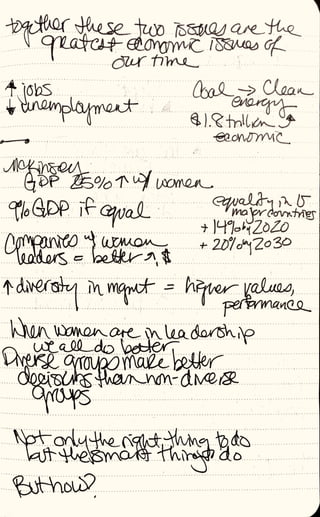 together these two issues are the
greatest economic issues of
our time
↑ jobs
↓ unemployment
Coal → Clean
energy
$1.8 trillion ↑
economic
McKinsey
GDP 25% ↑ w/ women
9% GDP if equal
equality in 15
major countries
+ 14% by 2020
+ 20% by 2030
Companies w/ women
leaders = better ↑, $
↑ diversity in mgmt = higher values,
performance
When women are in leadership
we all do better
Diverse groups make better
decisions than non-diverse
groups
Not only the right thing to do
but the smart thing to do
But how?